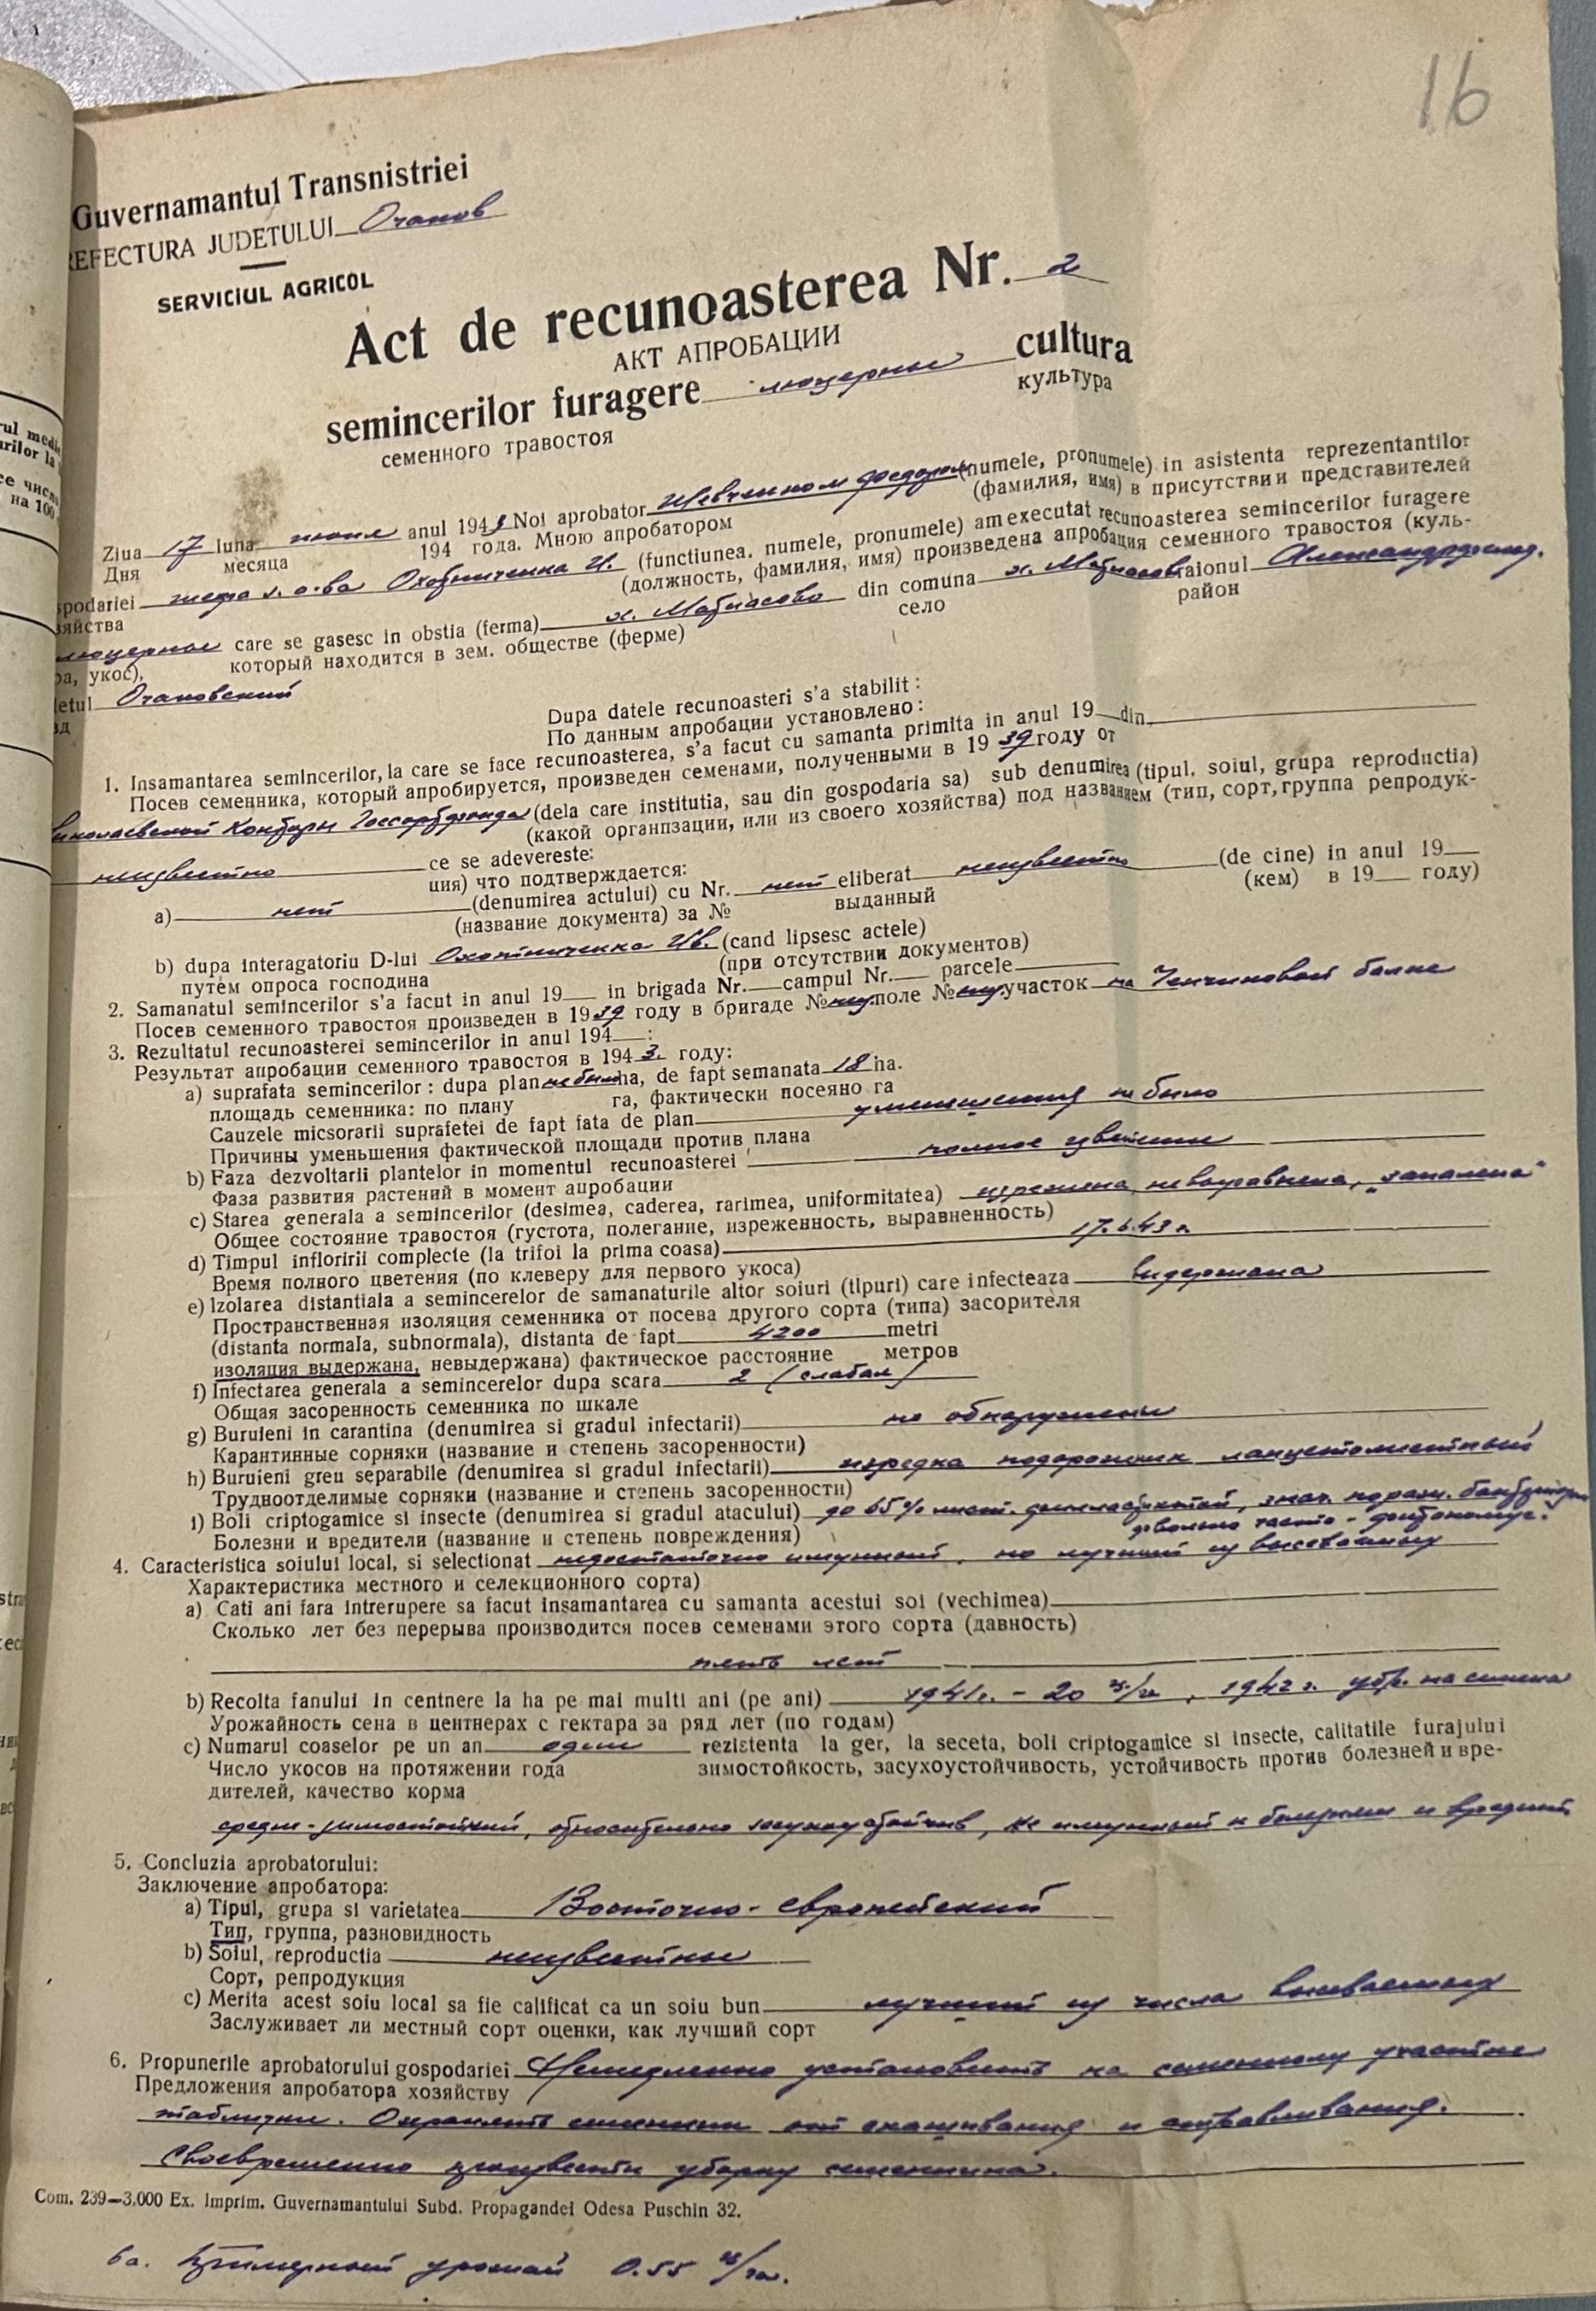 16
Guvernamantul Transnistriei
REFECTURA JUDETULUI Очаков
SERVICIUL AGRICOL
Act de recunoasterea Nr. 2
АКТ АПРОБАЦИИ
semincerilor furagere люцерны cultura
семенного травостоя культура
Ziua 17 luna июня anul 1943 Noi aprobator Шевченком Федором (numele, pronumele) in asistenta reprezentantilor
Дня месяца 194 года. Мною апробатором (фамилия, имя) в присутствии представителей
spodariei Охотниченка И. (functiunea, numele, pronumele) am executat recunoasterea semincerilor furagere
зяйства (должность, фамилия, имя) произведена апробация семенного травостоя (куль-
люцерны care se gasesc in obstia (ferma) din comuna raionul
ра, укос), который находится в зем. обществе (ферме) село район
etul Очаковский
зд
Dupa datele recunoasteri s'a stabilit:
По данным апробации установлено:
1. Insamantarea semincerilor, la care se face recunoasterea, s'a facut cu samanta primita in anul 19 din
Посев семенника, который апробируется, произведен семенами, полученными в 19 39 году от
Николаевской конторы Госсортфонда (dela care institutia, sau din gospodaria sa) sub denumirea (tipul, soiul, grupa reproductia)
(какой организации, или из своего хозяйства) под названием (тип, сорт, группа репродук-
неизвестно ce se adevereste:
ция) что подтверждается:
a) нет (denumirea actului) cu Nr. нет eliberat неизвестно (de cine) in anul 19
(название документа) за № выданный (кем) в 19 году)
b) dupa interagatoriu D-lui Охотниченка Ив. (cand lipsesc actele)
путём опроса господина (при отсутствии документов)
2. Samanatul semincerilor s'a facut in anul 19 in brigada Nr. campul Nr. parcele
Посев семенного травостоя произведен в 19 39 году в бригаде № поле № участок на балке
3. Rezultatul recunoasterei semincerilor in anul 194 :
Результат апробации семенного травостоя в 194 3. году:
a) suprafata semincerilor: dupa plan не было ha, de fapt semanata 18 ha.
площадь семенника: по плану га, фактически посеяно га
Cauzele micsorarii suprafetei de fapt fata de plan уменьшения не было
Причины уменьшения фактической площади против плана
b) Faza dezvoltarii plantelor in momentul recunoasterei полное цветение
Фаза развития растений в момент апробации
c) Starea generala a semincerilor (desimea, caderea, rarimea, uniformitatea) изрежена, невыравнена, „запалена"
Общее состояние травостоя (густота, полегание, изреженность, выравненность)
d) Timpul infloririi complecte (la trifoi la prima coasa) 17.6.43 г.
Время полного цветения (по клеверу для первого укоса)
e) Izolarea distantiala a semincerelor de samanaturile altor soiuri (tipuri) care infecteaza выдержана
Пространственная изоляция семенника от посева другого сорта (типа) засорителя
(distanta normala, subnormala), distanta de fapt 4200 metri
изоляция выдержана, невыдержана) фактическое расстояние метров
f) Infectarea generala a semincerelor dupa scara 2 (слабая)
Общая засоренность семенника по шкале
g) Buruieni in carantina (denumirea si gradul infectarii) не обнаружены
Карантинные сорняки (название и степень засоренности)
h) Buruieni greu separabile (denumirea si gradul infectarii) изредка подорожник ланцетолистный
Трудноотделимые сорняки (название и степень засоренности)
i) Boli criptogamice si insecte (denumirea si gradul atacului) до 65% лист.
довольно часто - фитономус.
Болезни и вредители (название и степень повреждения)
4. Caracteristica soiului local, si selectionat недостаточно имунный, но лучший из высеваемых
Характеристика местного и селекционного сорта)
a) Cati ani fara intrerupere sa facut insamantarea cu samanta acestui soi (vechimea)
Сколько лет без перерыва производится посев семенами этого сорта (давность)
пять лет
b) Recolta fanului in centnere la ha pe mai multi ani (pe ani) 1941 г. - 20 ц/га, 1942 г. убр. на семена
Урожайность сена в центнерах с гектара за ряд лет (по годам)
c) Numarul coaselor pe un an один rezistenta la ger, la seceta, boli criptogamice si insecte, calitatile furajului
Число укосов на протяжении года зимостойкость, засухоустойчивость, устойчивость против болезней и вре-
дителей, качество корма
средне-зимостойкий, относительно засухоустойчив, не имунный к болезням и вредит.
5. Concluzia aprobatorului:
Заключение апробатора:
a) Tipul, grupa si varietatea Восточно-европейский
Тип, группа, разновидность
b) Soiul, reproductia неизвестны
Сорт, репродукция
c) Merita acest soiu local sa fie calificat ca un soiu bun лучший из числа высеваемых
Заслуживает ли местный сорт оценки, как лучший сорт
6. Propunerile aprobatorului gospodariei Немедленно установить на семенному участке
Предложения апробатора хозяйству
таблички. Охранять семенник от скашивания и стравливания.
Своевременно произвести уборку семенника.
Com. 239—3,000 Ex. Imprim. Guvernamantului Subd. Propagandei Odesa Puschin 32.
6а. Примерный урожай 0.55 ц/га.